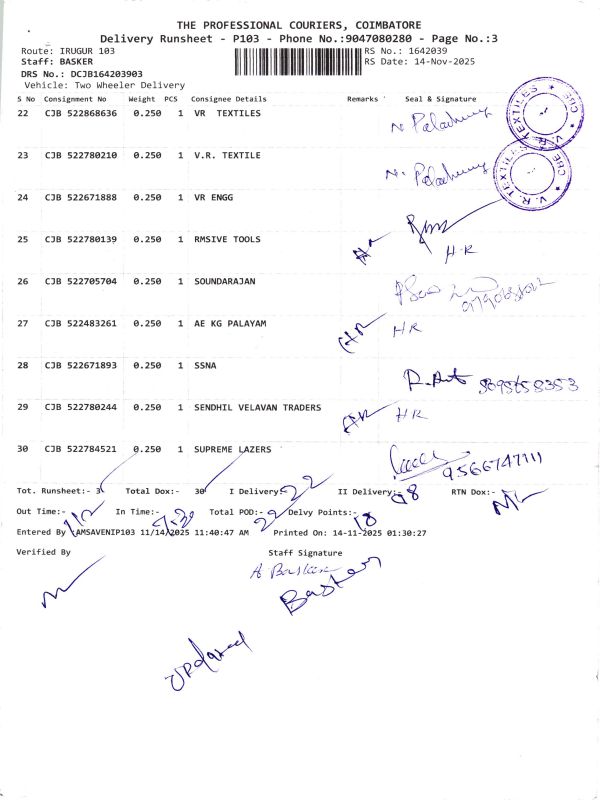 THE PROFESSIONAL COURIERS, COIMBATORE
Delivery Runsheet - P103 - Phone No.:9047080280 - Page No.:3
Route: IRUGUR 103 RS No.: 1642039
Staff: BASKER RS Date: 14-Nov-2025
DRS No.: DCJB164203903
Vehicle: Two Wheeler Delivery
S No Consignment No Weight PCS Consignee Details Remarks Seal & Signature
22 CJB 522868636 0.250 1 VR TEXTILES
V.R. TEXTILES * CBE *
23 CJB 522780210 0.250 1 V.R. TEXTILE
V.R. TEXTILES * CBE *
24 CJB 522671888 0.250 1 VR ENGG
25 CJB 522780139 0.250 1 RMSIVE TOOLS H-R
26 CJB 522705704 0.250 1 SOUNDARAJAN
27 CJB 522483261 0.250 1 AE KG PALAYAM HR
28 CJB 522671893 0.250 1 SSNA
29 CJB 522780244 0.250 1 SENDHIL VELAVAN TRADERS HR
30 CJB 522784521 0.250 1 SUPREME LAZERS
Tot. Runsheet:- 3 Total Dox:- 30 I Delivery:- 22 II Delivery:- 08 RTN Dox:-
Out Time:- In Time:- Total POD:- 22 Delvy Points:- 18
Entered By :AMSAVENIP103 11/14/2025 11:40:47 AM Printed On: 14-11-2025 01:30:27
Verified By Staff Signature
A Basker
Basker
Updated